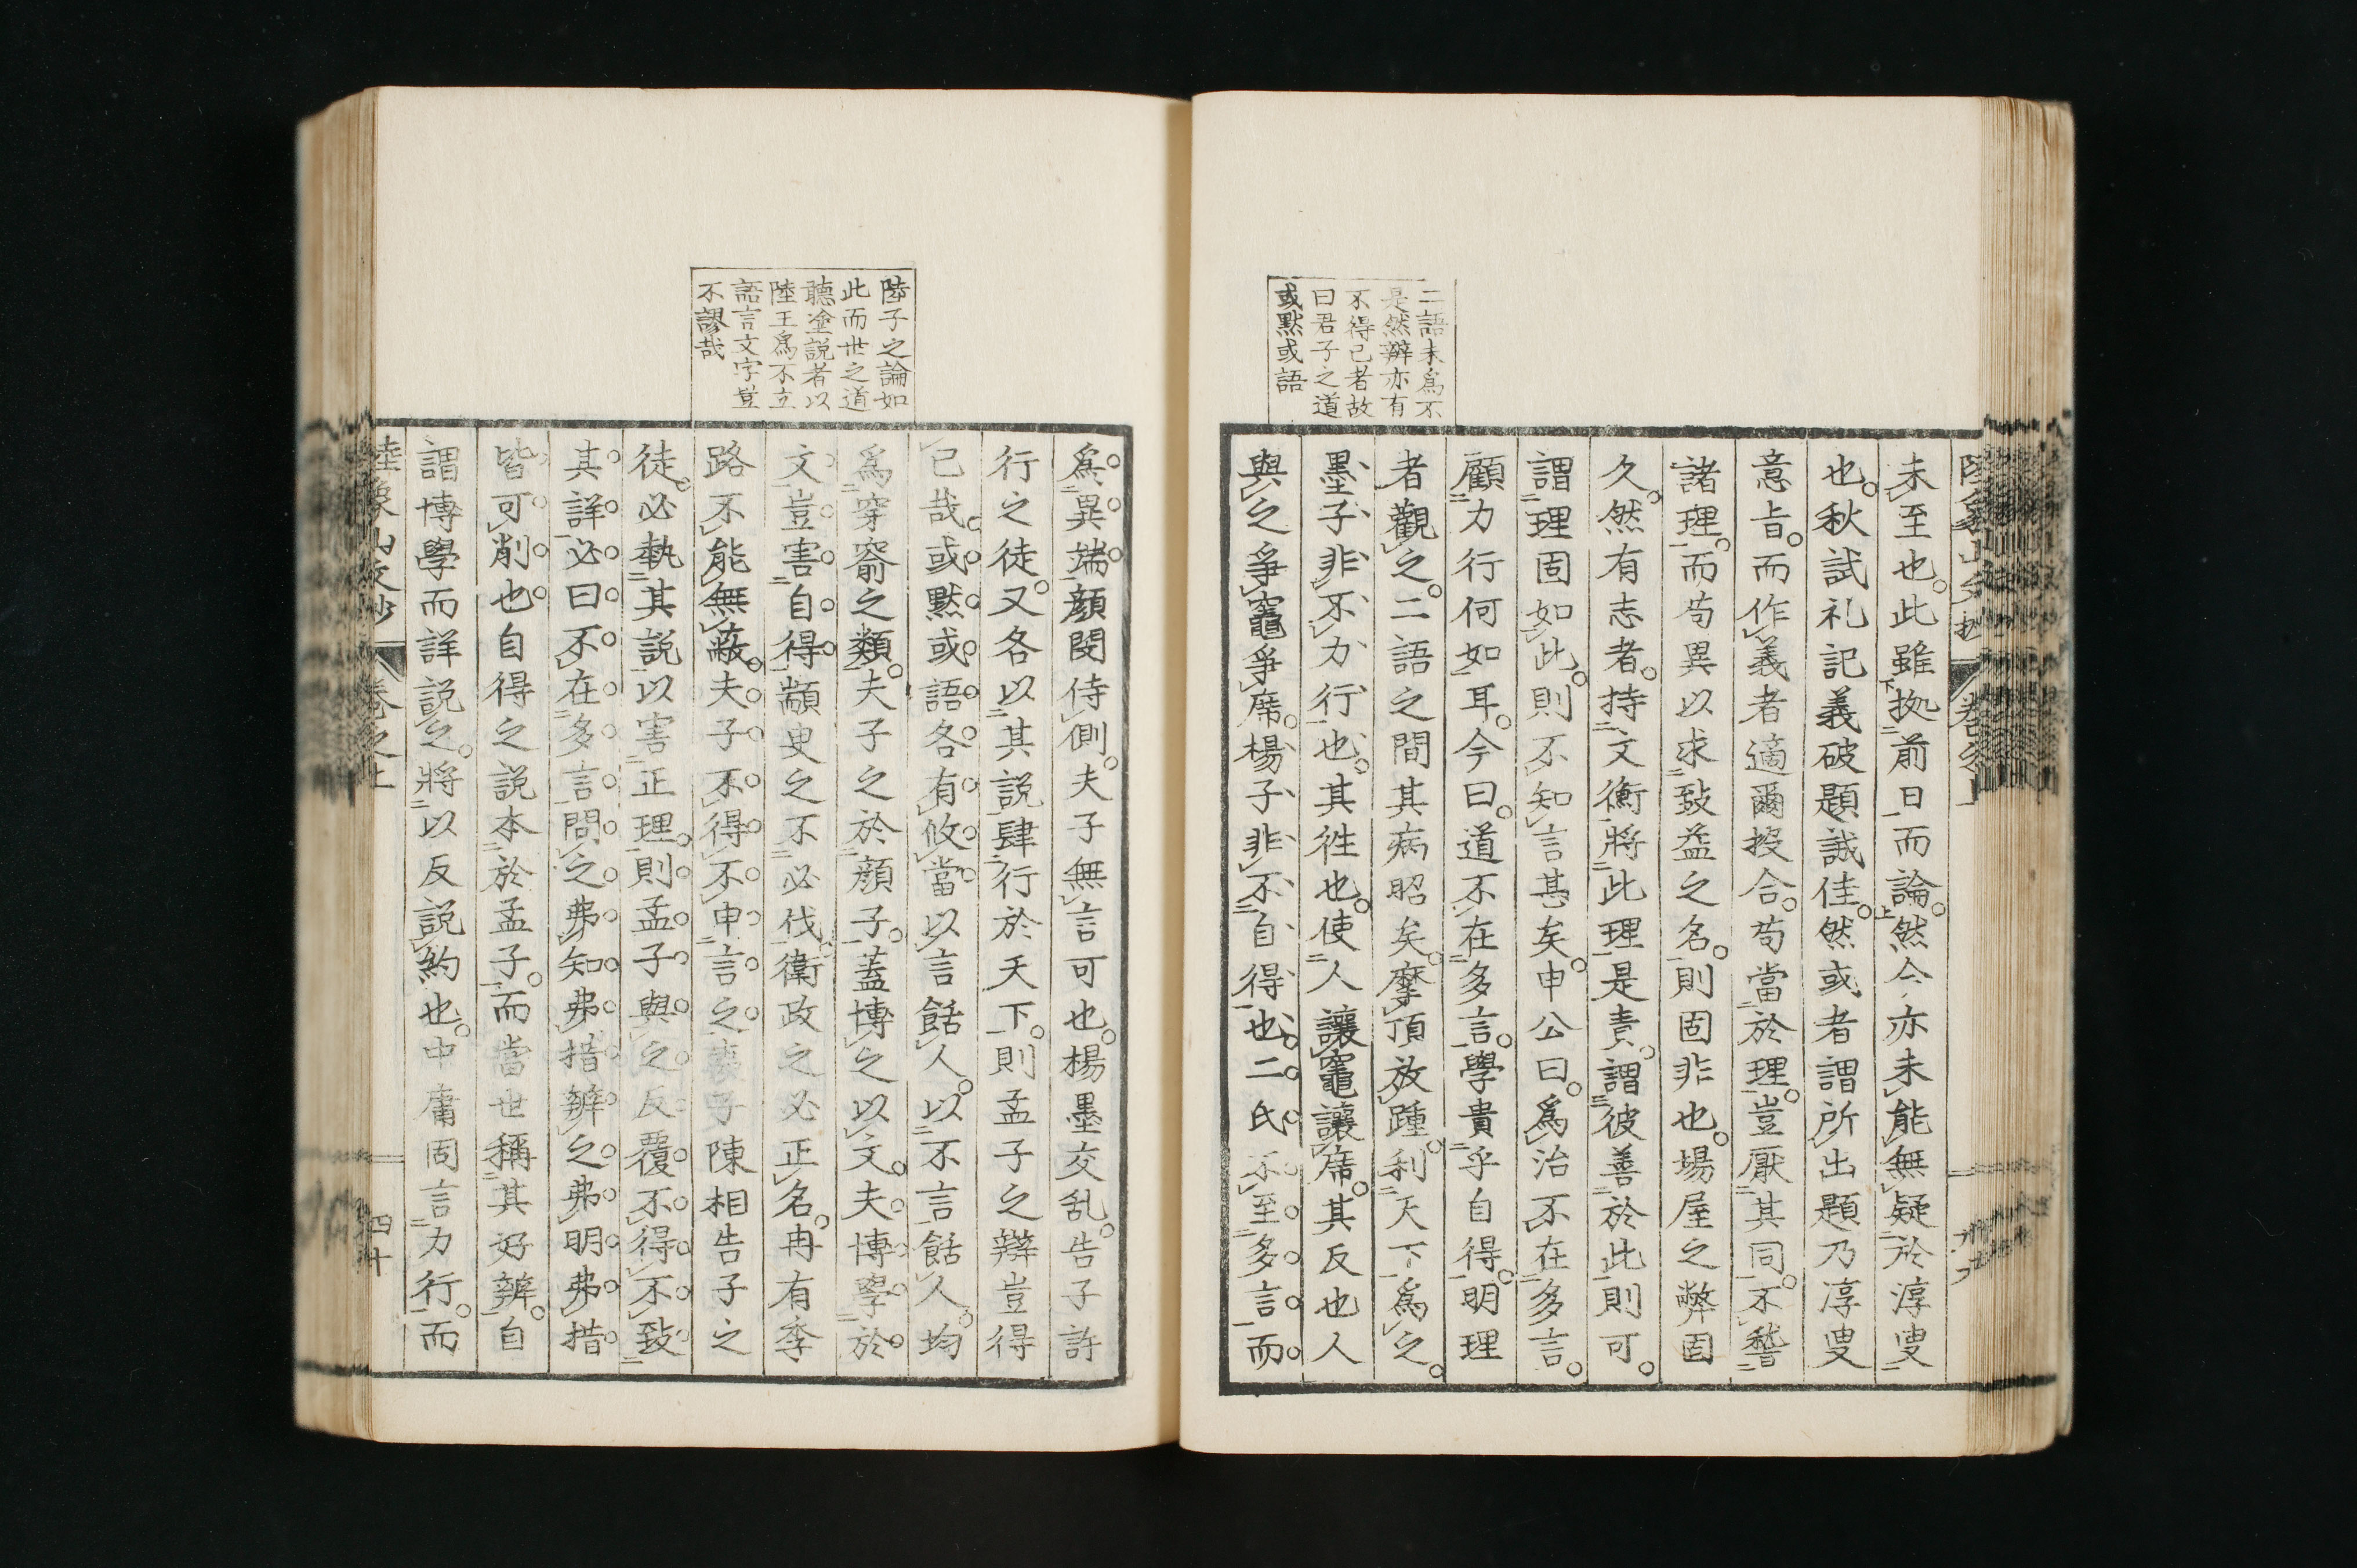 二語未爲不
是然辯亦有
不得已者故
曰君子之道
或默或語
未至也。此雖拠前日而論。然今亦未能無疑於淳叟
也。秋試礼記義破題誠佳。然或者謂所出題乃淳叟
意旨。而作義者適爾投合。苟當於理。豈厭其同。不稽
諸理。而苟異以求致益之名。則固非也。場屋之弊固
久。然有志者。持文衡將此理是責。謂彼善於此則可。
謂理固如此。則不知言甚矣。申公曰。爲治不在多言。
顧力行何如耳。今曰。道不在多言。學貴乎自得。明理
者觀之。二語之間其病昭矣。摩頂放踵。利天下爲之。
墨子非不力行也。其徃也。使人讓竈讓席。其反也人
與之爭竈爭席。楊子非不自得也。二氏不至多言。而
陸子之論如
此而世之道
聽塗説者以
陸王爲不立
語言文字豈
不謬哉
爲異端。顔閔侍側。夫子無言可也。楊墨交乱。告子許
行之徒。又各以其説肆行於天下。則孟子之辯豈得
已哉。或默或語各有攸當。以言餂人。以不言餂人。均
爲穿窬之類。夫子之於顔子。蓋博之以文。夫博學於
文。豈害自得。顓臾之不必伐衛政之必正名。冉有季
路不能無蔽。夫子不得不申言之。喪子陳相告子之
徒。必執其説以害正理。則孟子與之反覆不得不致
其詳。必曰不在多言。問之弗知弗措辨之弗明弗措
皆可削也。自得之説本於孟子。而當世稱其好辨。自
謂博學而詳説之。將以反説約也。中庸固言力行。而
陸象山文抄 卷之上 四十